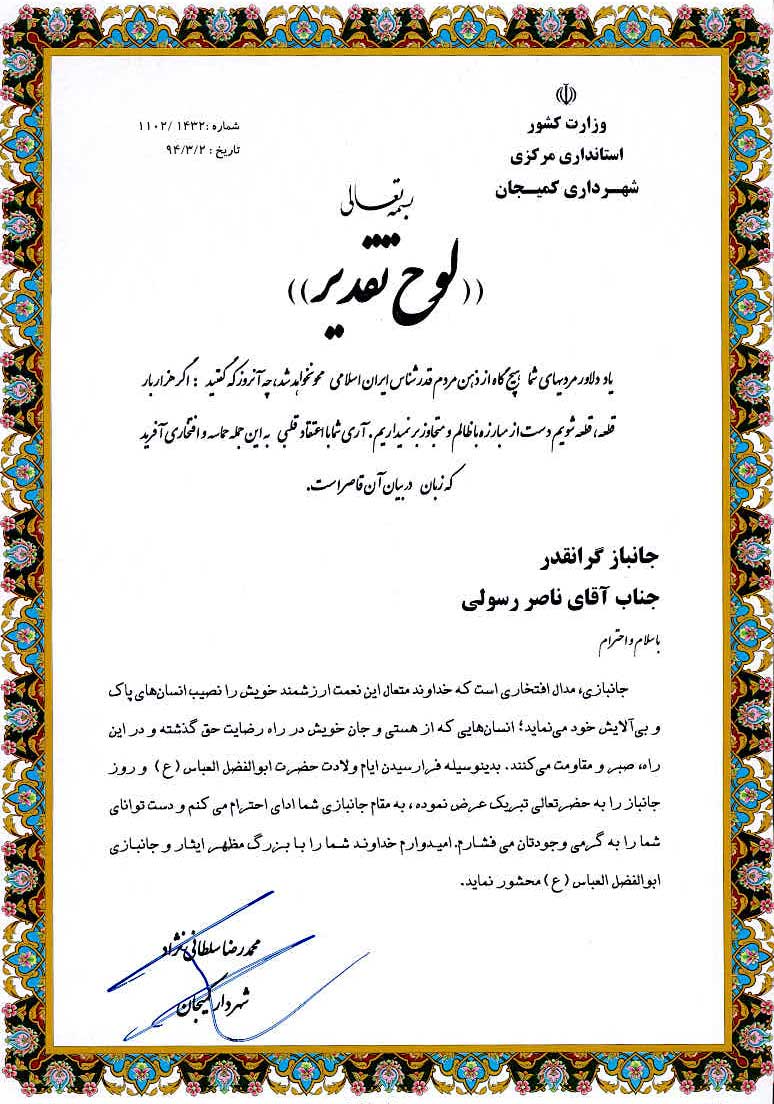 وزارت کشور
استانداری مرکزی
شهرداری کمیجان
شماره :۱۴۳۲ /۱۱۰۲
تاریخ : ۹۴/۳/۲
بسمه تعالی
((لوح تقدیر))
یاد دلاور مردیهای شما هیچ گاه از ذهن مردم قدرشناس ایران اسلامی محو نخواهد شد، چه آنروز که گفتید : اگر هزار بار
قطعه، قطعه شویم دست از مبارزه با ظالم و متجاوز بر نمیداریم. آری شما با اعتقاد قلبی به این جمله حماسه و افتخاری آفرید
که زبان در بیان آن قاصر است.
جانباز گرانقدر
جناب آقای ناصر رسولی
با سلام و احترام
جانبازی، مدال افتخاری است که خداوند متعال این نعمت ارزشمند خویش را نصیب انسان‌های پاک
و بی‌آلایش خود می‌نماید؛ انسان‌هایی که از هستی و جان خویش در راه رضایت حق گذشته و در این
راه، صبر و مقاومت می‌کنند. بدینوسیله فرارسیدن ایام ولادت حضرت ابوالفضل العباس (ع) و روز
جانباز را به حضرتعالی تبریک عرض نموده، به مقام جانبازی شما ادای احترام می کنم و دست توانای
شما را به گرمی وجودتان می فشارم. امیدوارم خداوند شما را با بزرگ مظهر ایثار و جانبازی
ابوالفضل العباس (ع) محشور نماید.
محمدرضا سلطانی نژاد
شهردار کمیجان